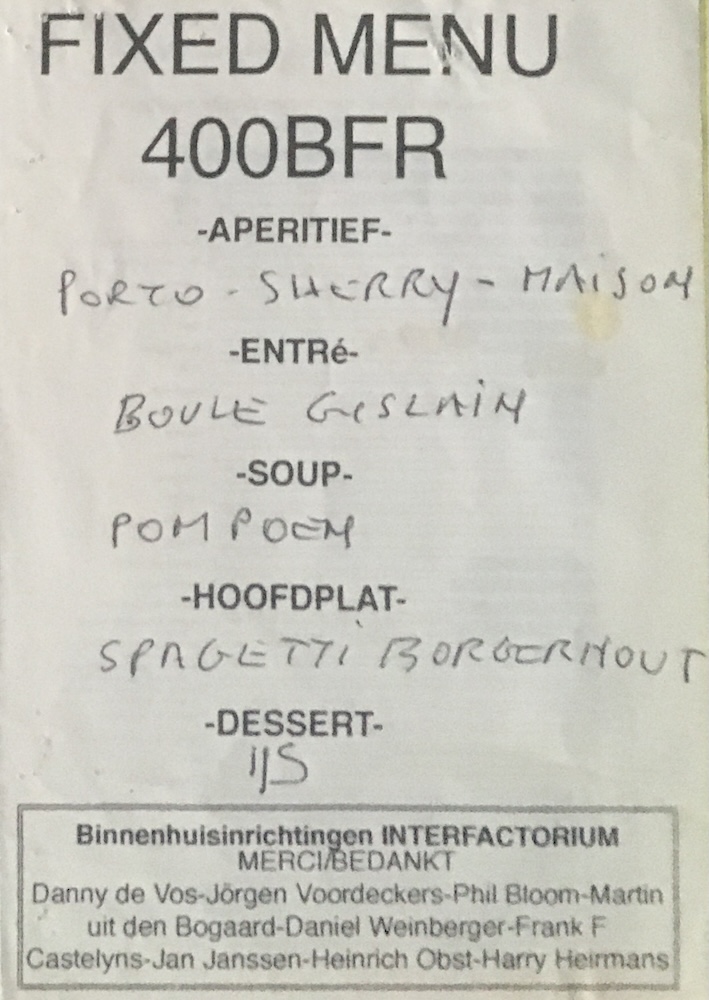 FIXED MENU
400BFR
-APERITIEF-
PORTO - SHERRY - MAISON
-ENTRé-
BOULE GISLAIN
-SOUP-
POMPOEN
-HOOFDPLAT-
SPAGETTI BORGERHOUT
-DESSERT-
IJS
Binnenhuisinrichtingen INTERFACTORIUM
MERCI/BEDANKT
Danny de Vos-Jörgen Voordeckers-Phil Bloom-Martin
uit den Bogaard-Daniel Weinberger-Frank F
Castelyns-Jan Janssen-Heinrich Obst-Harry Heirmans